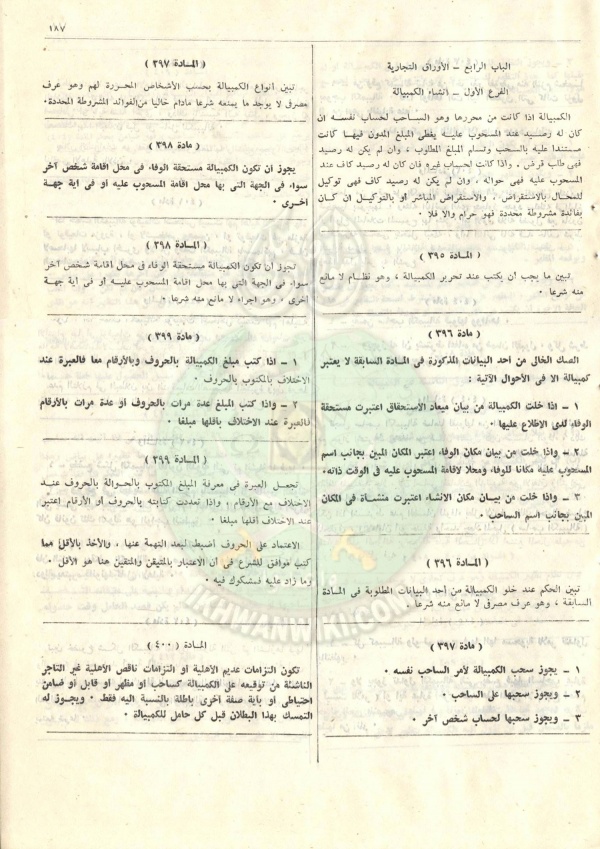 ١٨٧
الباب الرابع – الأوراق التجارية
الفرع الأول – انشاء الكمبيالة
الكمبيالة اذا كانت من محررها وهو الساحب لحساب نفسه ان
كان له رصيد عند المسحوب عليه يغطى المبلغ المدون فيها كانت
مستندا عليه بالسحب وتسام المبلغ المطلوب ، وان لم يكن له رصيد
فهى طلب قرض . واذا كانت لحساب غيره فان كان له رصيد كاف عند
المسحوب عليه فهى حواله ، وان لم يكن له رصيد كاف فهى توكيل
للمحال بالاستقراض ، والاستقراض المباشر أو بالتوكيل ان كان
بفائدة مشروطة محددة فهو حرام والا فلا .
المسادة ( ٣٩٥ )
تبين ما يجب أن يكتب عند تحرير الكمبيالة ، وهو نظام لا مانع
منه شرعا .
مادة ( ٣٩٦ )
الصك الخالى من أحد البيانات المذكورة فى المادة السابقة لا يعتبر
كمبيالة الا فى الأحوال الآتية :
١ – اذا خلت الكمبيالة من بيان ميعاد الاستحقاق اعتبرت مستحقة
الوفاء لدى الاطلاع عليها .
٢ – واذا خلت من بيان مكان الوفاء اعتبر المكان المبين بجانب اسم
المسحوب عليه مكانا للوفاء ومحلا لاقامة المسحوب عليه فى الوقت ذاته .
٣ – واذا خلت من بيان مكان الانشاء اعتبرت منشأة فى المكان
المبين بجانب اسم الساحب .
المسادة ( ٣٩٦ )
تبين الحكم عند خلو الكمبيالة من أحد البيانات المطلوبة فى المادة
السابقة ، وهو عرف مصرفى لا مانع منه شرعا .
مادة ( ٣٩٧ )
١ – يجوز سحب الكمبيالة لأمر الساحب نفسه .
٢ – ويجوز سحبها على الساحب .
٣ – ويجوز سحبها لحساب شخص آخر .
( المسادة ٣٩٧ )
تبين أنواع الكمبيالة بحسب الأشخاص المحررة لهم وهو عرف
مصرفى لا يوجد ما يمنعه شرعا مادام خاليا من الفوائد المشروطة المحددة .
مادة ( ٣٩٨ )
يجوز أن تكون الكمبيالة مستحقة الوفاء فى محل اقامة شخص آخر
سواء فى الجهة التى بها محل اقامة المسحوب عليه أو فى أية جهة
أخرى .
المسادة ( ٣٩٨ )
تجوز أن تكون الكمبيالة مستحقة الوفاء فى محل اقامة شخص آخر
سواء فى الجهة التى بها محل اقامة المسحوب عليه أو فى أية جهة
أخرى ، وهو اجراء لا مانع منه شرعا .
مادة ( ٣٩٩ )
١ – اذا كتب مبلغ الكمبيالة بالحروف وبالأرقام معا فالعبرة عند
الاختلاف بالمكتوب بالحروف .
٢ – واذا كتب المبلغ عدة مرات بالحروف أو عدة مرات بالأرقام
فالعبرة عند الاختلاف بأقلها مبلغا .
المسادة ( ٣٩٩ )
تجعل العبرة فى معرفة المبلغ المكتوب بالحوالة بالحروف عند
الاختلاف مع الأرقام ، واذا تعددت كتابته بالحروف أو الأرقام اعتبر
عند الاختلاف أقلها مبلغا .
الاعتماد على الحروف أضبط لبعد التهمة عنها ، والأخذ بالأقل مما
كتب موافق للشرع فى أن الاعتبار بالمتيقن والمتيقن هنا هو الأقل .
وما زاد عليه فمشكوك فيه .
المسادة ( ٤٠٠ )
تكون التزامات عديم الأهلية أو التزامات ناقص الأهلية غير التاجر
الناشئة من توقيعه على الكمبيالة كساحب أو مظهر أو قابل أو ضامن
احتياطى أو بأية صفة أخرى باطلة بالنسبة اليه فقط . ويجوز له
التمسك بهذا البطلان قبل كل حامل للكمبيالة .
IKHWANWIKI.COM